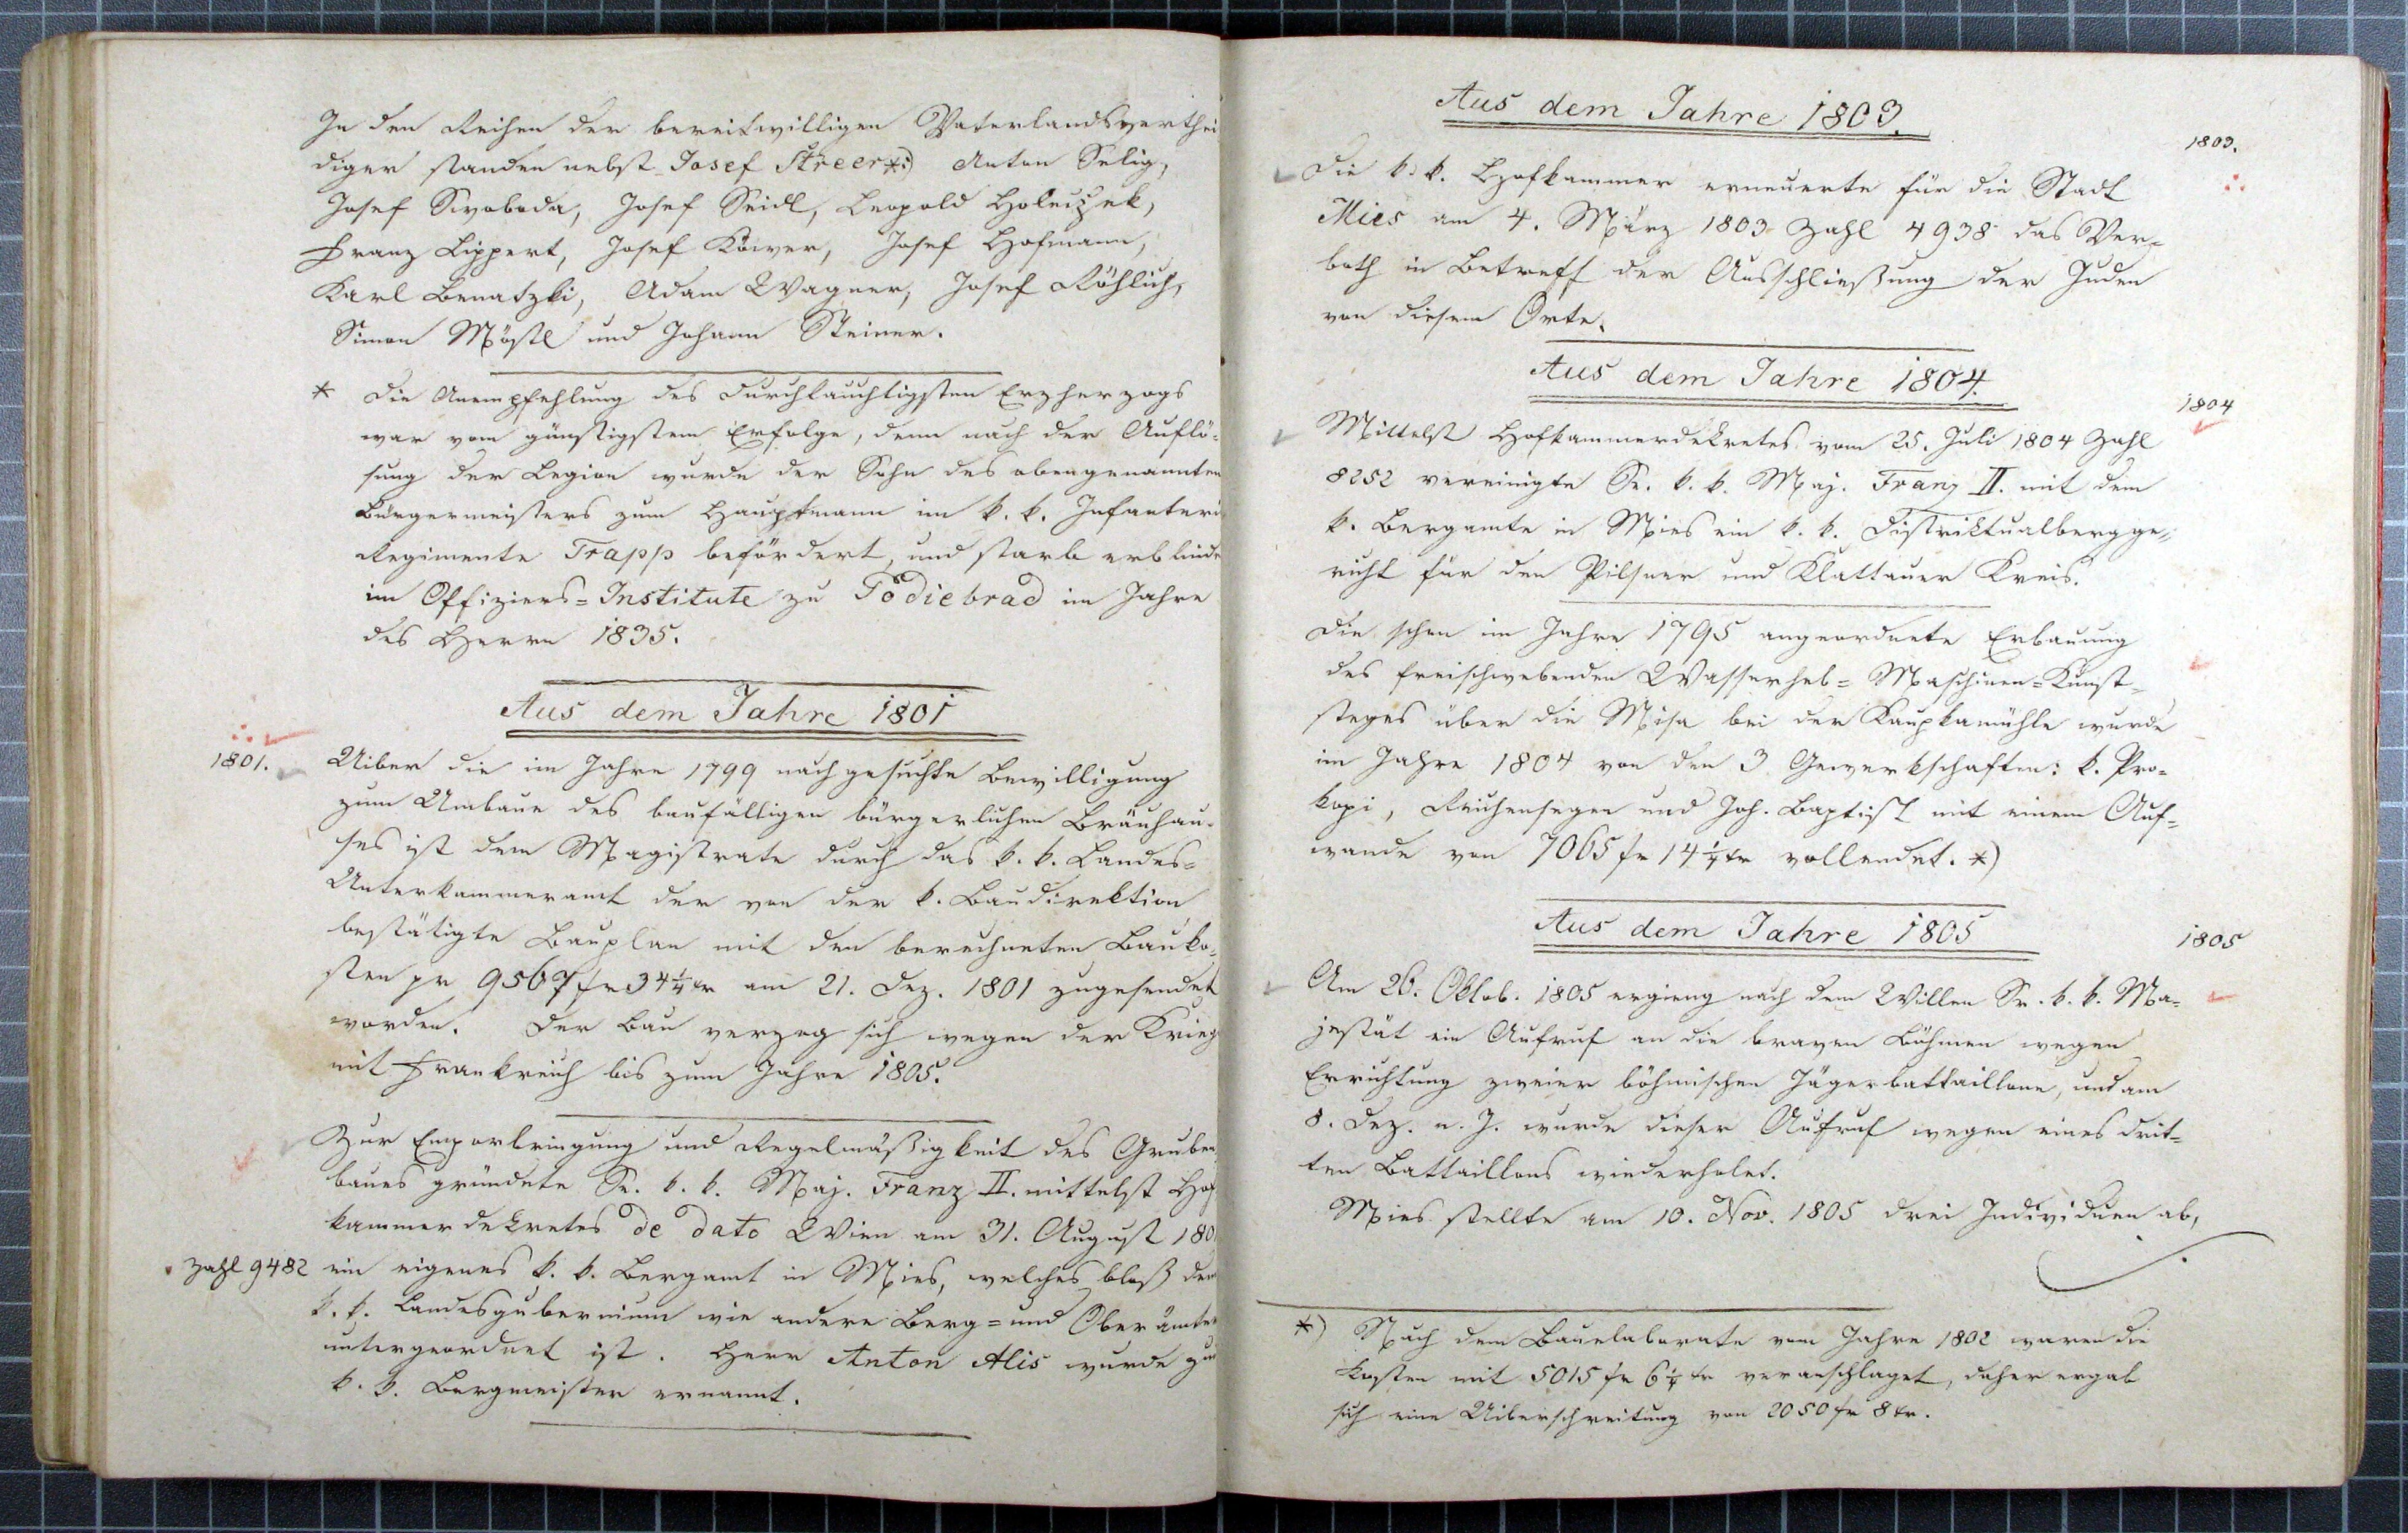 In den Reihen der bereitwilligen Vaterlandsverthei
diger standen nebst Josef Streer *) Anton Selig,
Josef Swoboda, Josef Seidl, Leopold Holeczek,
Franz Lippert, Josef Josef Hofmann,
Karl Benatzki, Adam Wagner, Josef Röhlich,
Simon Mößl und Johann Steiner.
* Die Anempfehlung des Durchlauchtigsten Erzherzogs
war vom günstigstem Erfolge, denn nach der Auflö-
sung der Legion wurde der Sohn des obengenannten
Bürgermeisters zum Hauptmann im k. k. Infanterie
Regimente Trapp befördert, und starb erblindet
im Offiziers-Institute zu Podiebrad im Jahre
des Herrn 1835.
Aus dem Jahre 1801
1801. Uiber die im Jahre 1799 nachgesuchte Bewilligung
zum Umbaue des baufälligen bürgerlichen Bräuhau-
ses ist dem Magistrate durch das k. k. Landes-
Unterkammeramt der von der k. Baudirektion
bestätigte Bauplan mit den berechneten Bauko-
sten pr 9567 fr 34 1/4 kr am 21. Dez. 1801 zugesendet
worden. Der Bau verzog sich wegen der Krieg
mit Frankreich bis zum Jahre 1805.
Zur Emporbringung und Regelmäßigkeit des Gruben
baues gründete Se. k. k. Maj. Franz II. mittelst Hof
kammerdekretes de dato Wien am 31. August 1801
Zahl 9482 ein eigenes k. k. Bergamt in Mies, welches bloß dem
k. k. Landesgubernium wie andere Berg- und Oberämter
untergeordnet ist. Herr Anton Alis wurde zum
k. k. Bergmeister ernannt.
Aus dem Jahre 1803.
1803.
Die k. k. Hofkammer erneuerte für die Stadt
Mies am 4. März 1803 Zahl 4938 das Ver-
both in Betreff der Ausschließung der Juden
von diesem Orte.
Aus dem Jahre 1804.
1804
Mittelst Hofkammerdekretes vom 25. Juli 1804 Zahl
8252 vereinigte Se. k. k. Maj. Franz II. mit dem
k. Bergamte in Mies ein k. k. Distriktualbergge-
richt für den Pilsner und Klattauer Kreis.
Die schon im Jahre 1795 angeordnete Erbauung
des freischwebenden Wasserheb-Maschinen-Kunst-
steges über die Misa bei der Kaupkamühle wurde
im Jahre 1804 von den 3 Gewerkschaften: k. Pro-
kopi, Reichensegen und Joh. Baptist mit einem Auf-
wande von 7065 fr 14 1/4 kr vollendet. *)
Aus dem Jahre 1805
1805
Am 26. Oktob. 1805 ergieng nach dem Willen Sr. k. k. Ma-
jestät ein Aufruf an die braven Böhmen wegen
Errichtung zweier böhmischen Jägerbattaillone, und am
8. Dez. n. J. wurde dieser Aufruf wegen eines drit-
ten Battaillons wiederholet.
Mies stellte am 10. Nov. 1805 drei Individuen ab,
*) Nach dem Bauelaborate vom Jahre 1802 waren die
Kosten mit 5015 fr 6 1/4 kr veranschlaget, daher ergab
sich eine Uiberschreitung von 2050 fr 8 kr.